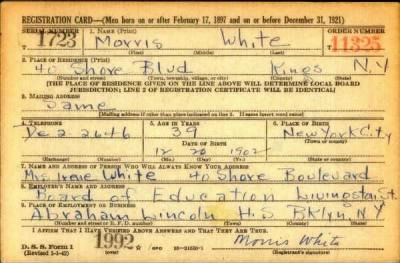 REGISTRATION CARD—(Men born on or after February 17, 1897 and on or before December 31, 1921)
SERIAL NUMBER 1. NAME (Print) ORDER NUMBER
1723 Morris White 11325
(First) (Middle) (Last)
2. PLACE OF RESIDENCE (Print)
40 Shore Blvd Kings N.Y
(Number and street) (Town, township, village, or city) (County) (State)
[THE PLACE OF RESIDENCE GIVEN ON THE LINE ABOVE WILL DETERMINE LOCAL BOARD
JURISDICTION; LINE 2 OF REGISTRATION CERTIFICATE WILL BE IDENTICAL]
3. MAILING ADDRESS
Same
[Mailing address if other than place indicated on line 2. If same insert word same]
4. TELEPHONE 5. AGE IN YEARS 6. PLACE OF BIRTH
De 2 2646 39 New York City
DATE OF BIRTH (Town or county)
12 20 1902
(Exchange) (Number) (Mo.) (Day) (Yr.) (State or country)
7. NAME AND ADDRESS OF PERSON WHO WILL ALWAYS KNOW YOUR ADDRESS
Mrs Irene White 40 Shore Boulevard
8. EMPLOYER'S NAME AND ADDRESS
Board of Education Livingston St.
9. PLACE OF EMPLOYMENT OR BUSINESS
Abraham Lincoln H.S Bklyn, N.Y
(Number and street or R. F. D. number) (Town) (County) (State)
I AFFIRM THAT I HAVE VERIFIED ABOVE ANSWERS AND THAT THEY ARE TRUE.
D. S. S. Form 1 1992 GPO Morris White
(Revised 1-1-42) (over) (Registrant's signature)